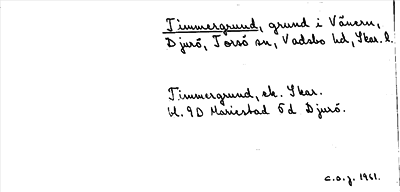 Timmergrund, grund i Vänern,
Djurö, Torsö sn, Vadsbo hd, Skar. l.
Timmergrund, ek. Skar.
bl. 9D Mariestad 5d Djurö.
C.O.J. 1961.